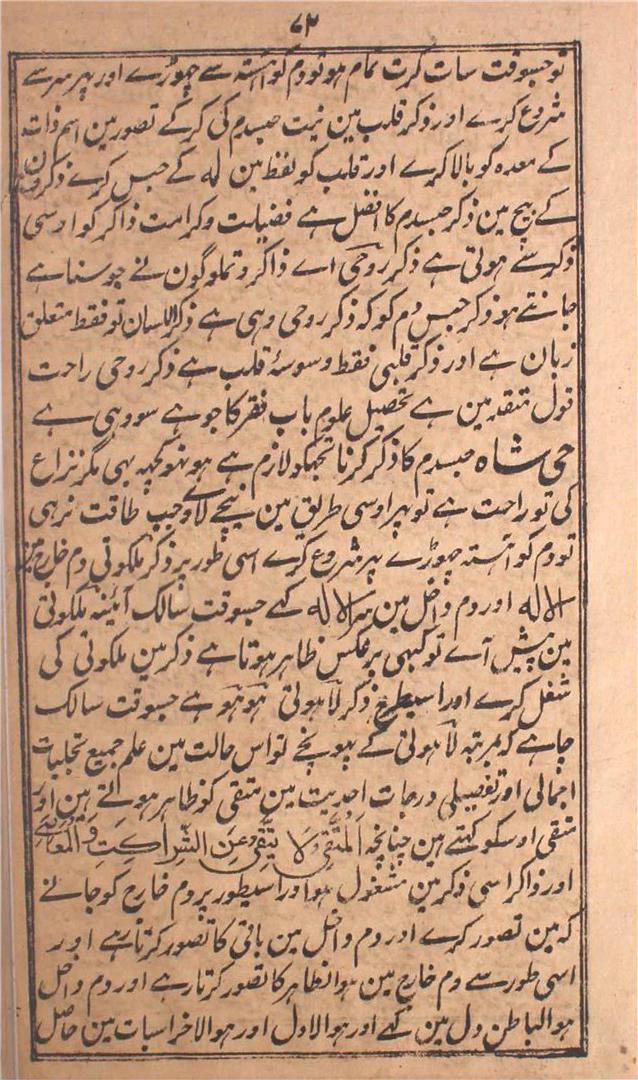 ۷۲
تو جسوقت سات کرت تمام ہو تو دم کو آہستہ سے چھوڑے اور پہر سرے سے
شروع کرے اور ذکر قلب مین نیت حبسدم کی کرکے تصور مین اسم ذات
کے معدہ کو بالا کرے اور قلب کو لفظ مین لہ کے حبس کرے ذکرون
کے بیچ مین ذکر حبسدم کا افضل ہے فضیلت و کرامت ذاکر کو اوسی
ذکر سے ہوتی ہے ذکر روحی اے ذاکر و تملوگون نے جو سنا ہے
جانتے ہو ذکر حبس دم کو کہ ذکر روحی وہی ہے ذکر اللسان تو فقط متعلق
زبان ہے اور ذکر قلبی فقط وسوسۂ قلب ہے ذکر روحی راحت
قول متقدمین ہے تحصیل علوم باب فقر کا جو ہے سو وہی ہے
حی شاہ حبسدم کا ذکر کرنا تجہکو لازم ہے ہو نہو کچہہ بہی مگر نزاع
کی تو راحت ہے تو پہر اوسی طریق مین نیچے لاوے جب طاقت نرہی
تو دم کو آہستہ چھوڑے پہر شروع کرے اسی طور پر ذکر ملکوتی دم خارج مین
الا لہ اور دم داخل مین الا لہ کہے جسوقت سالک آئینہ ملکوتی
مین پیش آے تو کبہی برعکس ظاہر ہوتا ہے ذکر مین ملکوتی کی
شغل کرے اور اسیطرح ذکر لاہوتی ہو ہو ہے جسوقت سالک
چاہے کہ مرتبہ لاہوتی کے پہونچے تو اس حالت مین علم جمیع تجلیات
اجمالی اور تفصیلی درجات احدیت مین متقی کو ظاہر ہوتے ہین اور
متقی اوسکو کہتے ہین چنانچہ المتقی لا یتقی عن الشراکت و المعاصی
اور ذاکر اسی ذکر مین مشغول ہو اور اسیطور پر دم خارج کو جانے
کہ مین تصور کرے اور دم داخل مین باقی کا تصور کرتا رہے اور
اسی طور سے دم خارج مین ہوا لظاہر کا تصور کرتا رہے اور دم داخل
ہو الباطن دل مین کہے اور ہو الاول اور ہو الاخر اسبات مین حاصل